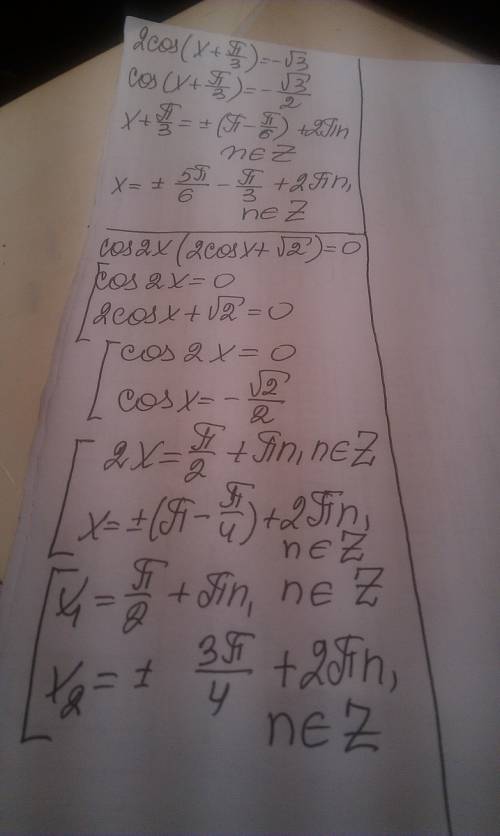 2cos(x+π/3)=-√3
cos(x+π/3)=-√3/2
x+π/3=±(π-π/6)+2πn
n∈Z
x=±5π/6-π/3+2πn,
n∈Z
cos2x(2cosx+√2)=0
[cos2x=0
2cosx+√2=0
[cos2x=0
cosx=-√2/2
[2x=π/2+πn, n∈Z
x=±(π-π/4)+2πn,
n∈Z
[x₁=π/2+πn, n∈Z
x₂=± 3π/4+2πn,
n∈Z